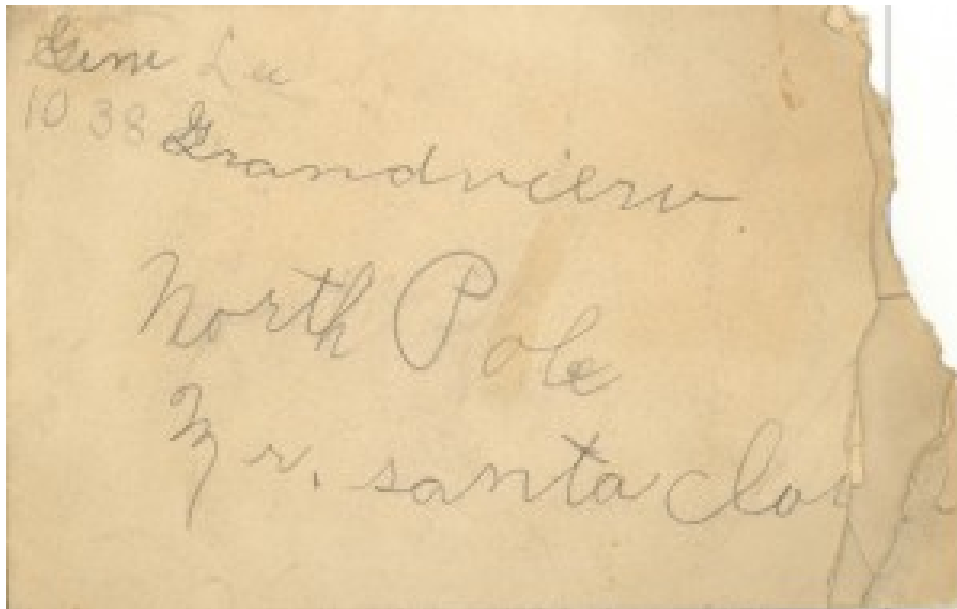 Gene Lee
1038 Grandview.
North Pole
Mr. santa